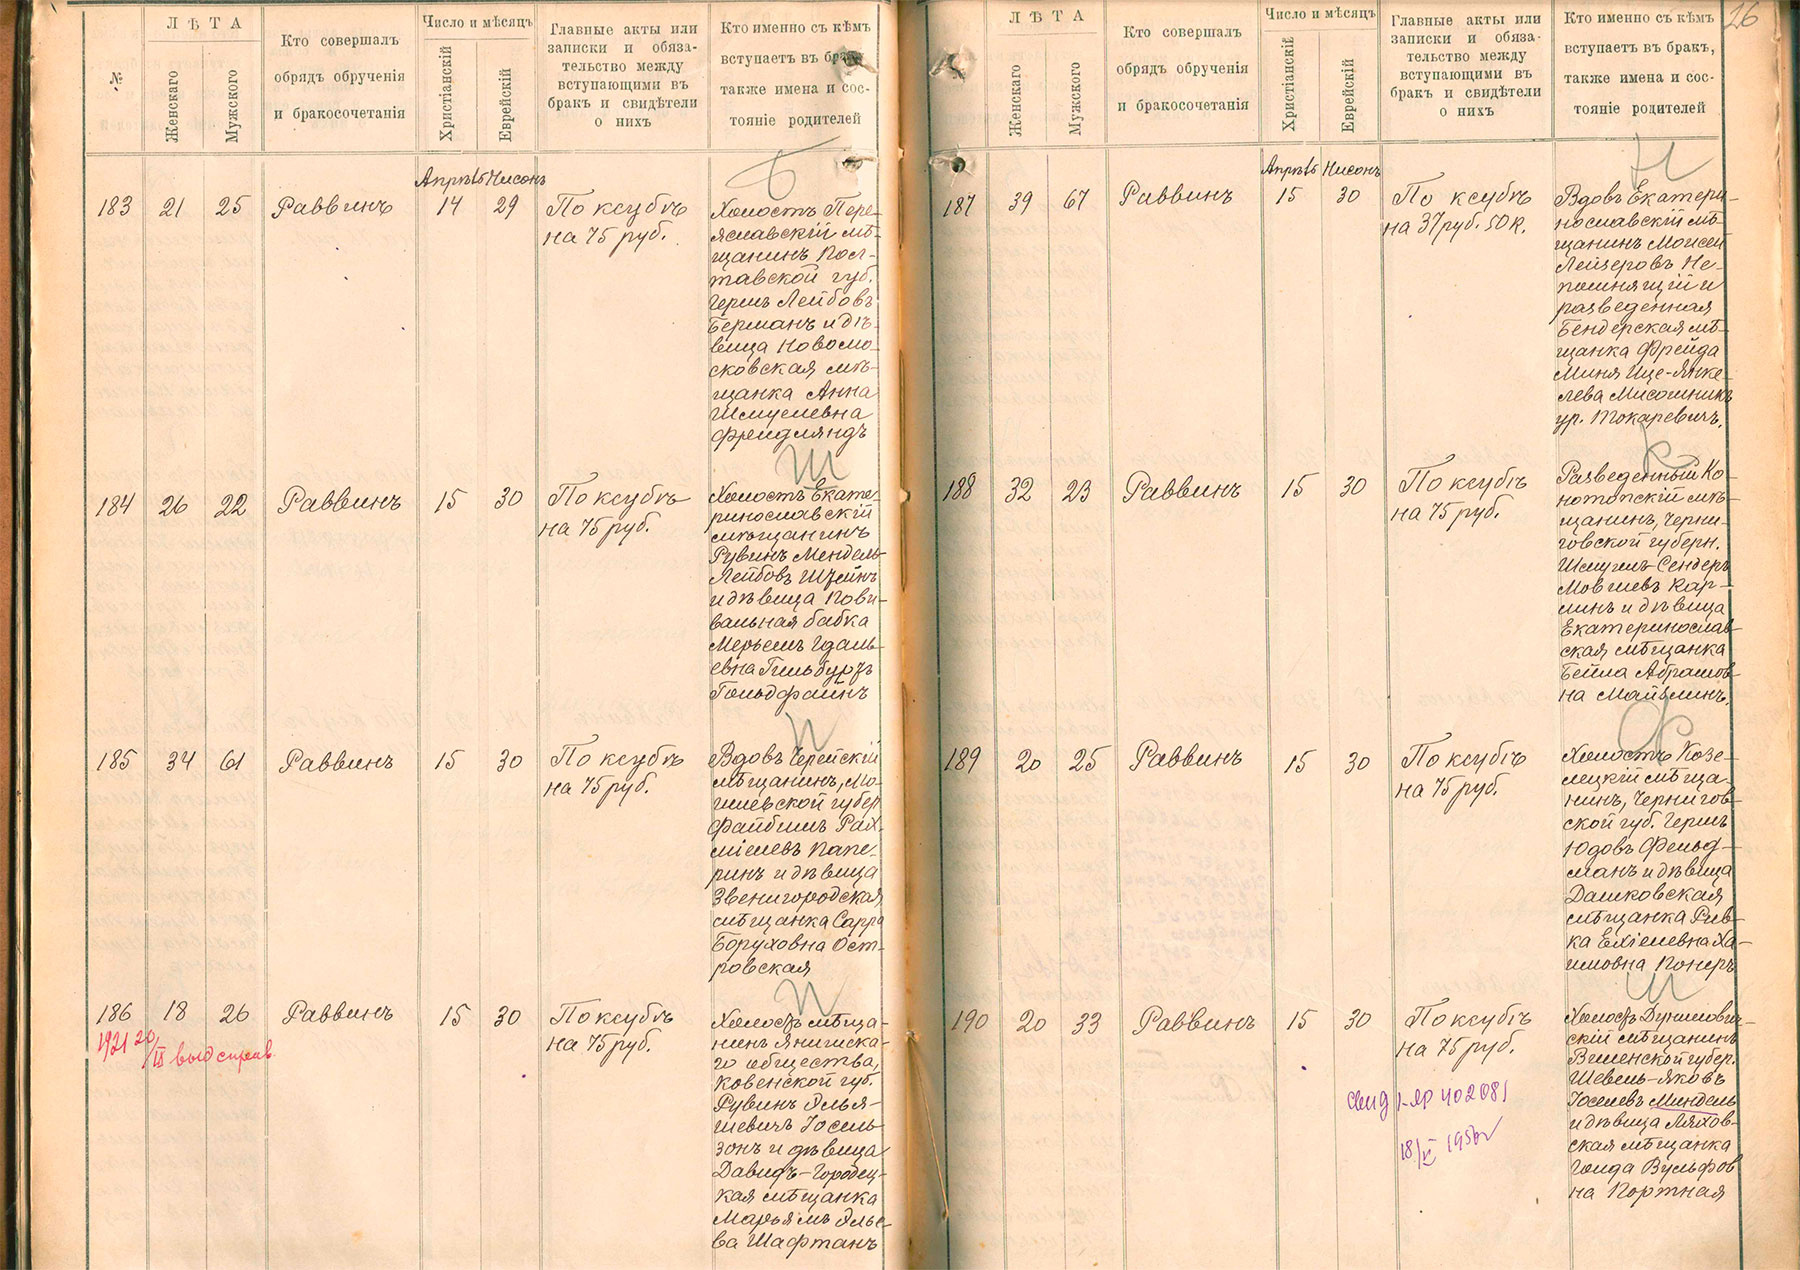 №
ЛѢТА
Женскаго
Мужского
Кто совершалъ
обрядъ обрученія
и бракосочетанія
Число и мѣсяцъ
Христіанскій
Еврейскій
Главные акты или
записки и обяза-
тельство между
вступающими въ
бракъ и свидѣтели
о нихъ
Кто именно съ кѣмъ
вступаетъ въ бракъ
также имена и сос-
тояніе родителей
Апрѣль Нисонъ
183 21 25 Раввинъ 14 29
По ксубѣ
на 75 руб.
Холостъ Пере-
яславскій мѣ-
щанинъ Пол-
тавской губ.
Гершъ Лейбовъ
Берманъ и дѣ-
вица Новомо-
сковская мѣ-
щанка Анна
Шмулевна
Фрейдляндъ
184 26 22 Раввинъ 15 30
По ксубѣ
на 75 руб.
Ш
Холостъ Екате-
ринославскій
мѣщанинъ
Рувинъ Мендель-
Лейбовъ Штейнъ
и дѣвица Пови-
вальная бабка
Мерьемъ Гдаль-
евна Гильбурдъ
Гольдфайнъ
185 34 61 Раввинъ 15 30
По ксубѣ
на 75 руб.
П
Вдовъ Черейскій
мѣщанинъ, Мо-
гилевской губер
Файбишъ Рах-
міелевъ Папе-
ринъ и дѣвица
Звенигородская
мѣщанка Сарра
Боруховна Ост-
ровская
186 18 26 Раввинъ 15 30
1921 20/IX выд справ.
По ксубѣ
на 75 руб.
Холостъ мѣща-
нинъ Янишска-
го общества,
Ковенской губ.
Рувинъ Элья-
шевичъ Іосель-
зонъ и дѣвица
Давидъ-Городец-
кая мѣщанка
Марьямъ Элье-
ва Шафтанъ
26
ЛѢТА
Женскаго
Мужского
Кто совершалъ
обрядъ обрученія
и бракосочетанія
Число и мѣсяцъ
Христіанскій
Еврейскій
Главные акты или
записки и обяза-
тельство между
вступающими въ
бракъ и свидѣтели
о нихъ
Кто именно съ кѣмъ
вступаетъ въ бракъ,
также имена и сос-
тояніе родителей
Апрѣль Нисонъ
187 39 67 Раввинъ 15 30
По ксубѣ
на 37 руб. 50 к.
Н
Вдовъ Екатери-
нославскій мѣ-
щанинъ Моисей
Лейзеровъ Не-
помнящій и
разведенная
Бендерская мѣ-
щанка Фрейда
Миня Ице-Янке-
лева Мисошникъ
ур. Токаревичъ.
188 32 23 Раввинъ 15 30
По ксубѣ
на 75 руб.
К
Разведенный Ко-
нотопскій мѣ-
щанинъ, Черни-
говской губерн.
Шмуилъ-Сендеръ
Мовшевъ Кар-
линъ и дѣвица
Екатеринослав-
ская мѣщанка
Бейла Абрамов-
на Майзлинъ.
189 20 25 Раввинъ 15 30
По ксубѣ
на 75 руб.
Ф
Холостъ Козе-
лецкій мѣща-
нинъ, Чернигов-
ской губ. Гершъ
Юдовъ Фельд-
манъ и дѣвица
Дашковская
мѣщанка Рив-
ка Ехіелевна Ха-
имовна Понеръ
190 20 33 Раввинъ 15 30
По ксубѣ
на 75 руб.
свид I-яр 402081
18/V 1956г
Холостъ Дунилович-
скій мѣщанинъ
Виленской губер.
Шевель-Яковъ
Іоселевъ Миндель
и дѣвица Ляхов-
ская мѣщанка
Голда Вульфов
на Портная